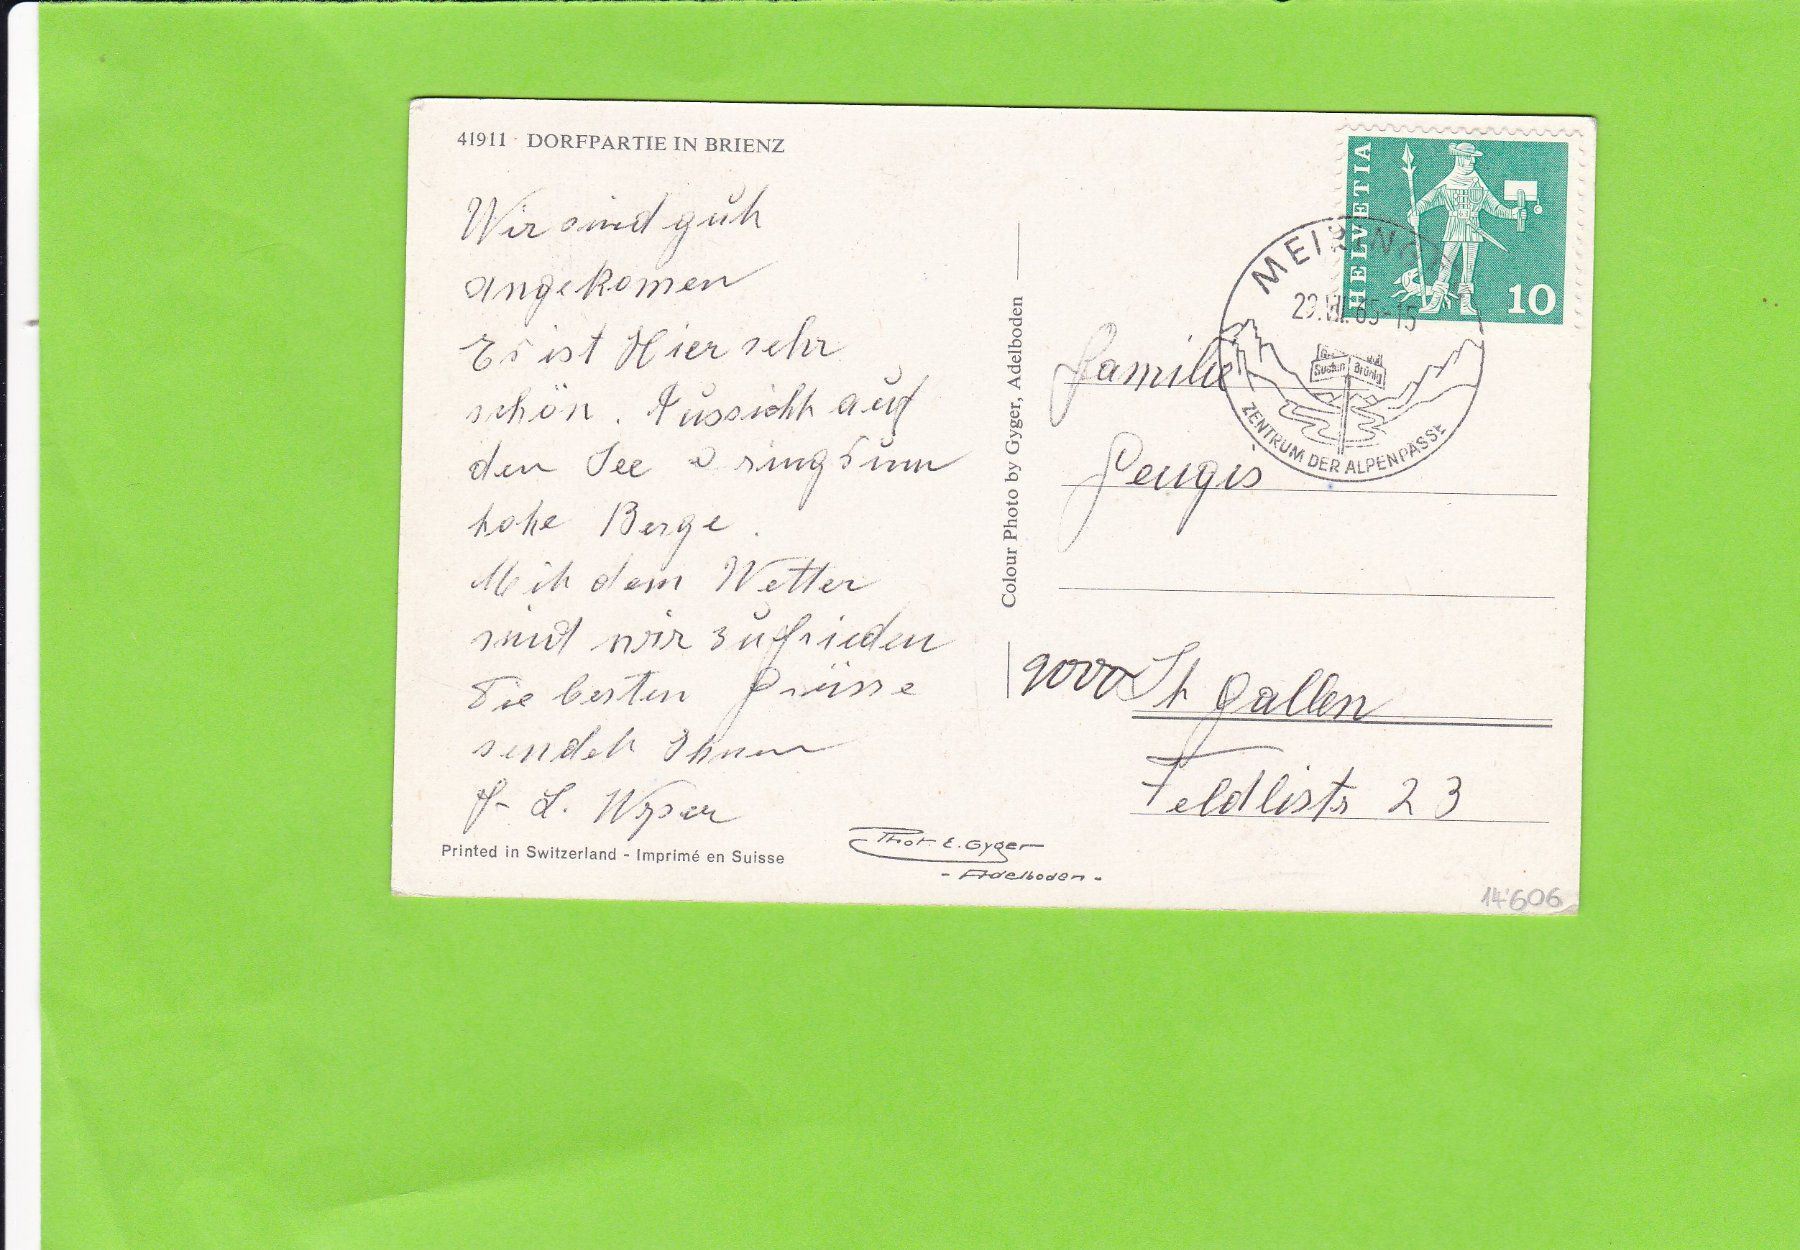 41911 DORFPARTIE IN BRIENZ
Wir sind guht
angekomen
Es ist Hier sehr
schön. Aussicht auf
den See ringsum
hohe Berge.
Mit dem Wetter
sind wir zufrieden
Die besten Grüsse
sendet Ihnen
L. Wyser
Printed in Switzerland - Imprimé en Suisse
Phot. E. Gyger
- Adelboden -
Colour Photo by Gyger, Adelboden
HELVETIA
10
65-15
Susten Brünig
ZENTRUM DER ALPENPÄSSE
Familie
9000 St Gallen
Feldlistr 23
14'606